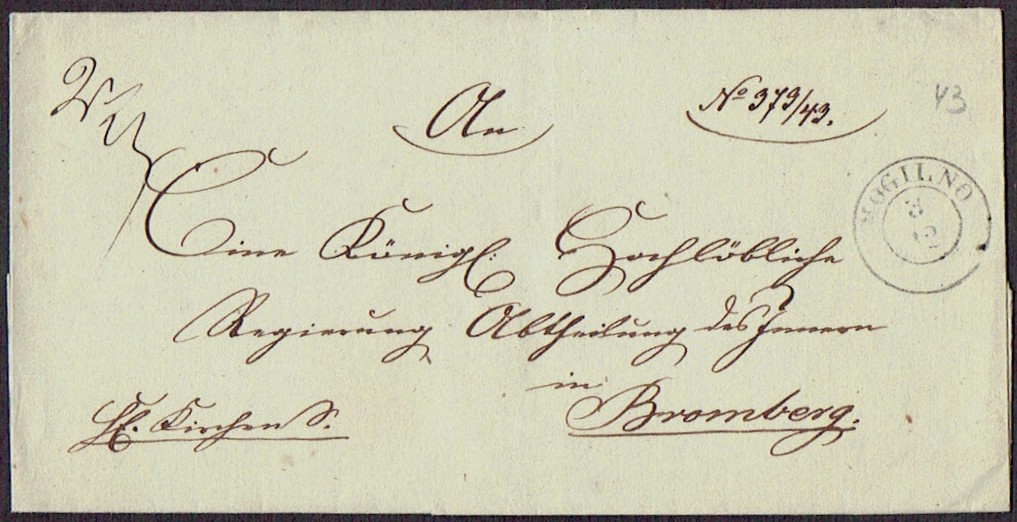 An
No 373/43.
43
MOGILNO
3
12
Eine Königl: Hochlöbliche
Regierung Abtheilung des Innern
in
Bromberg.
Kirchen S.